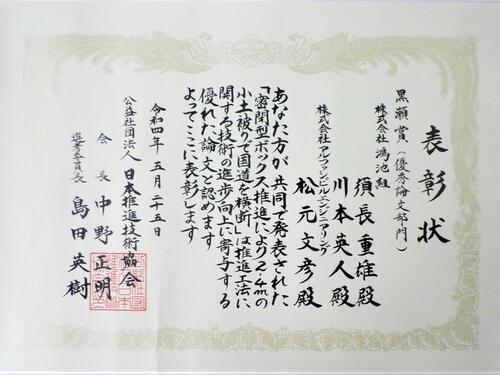 表彰状
黒瀬賞(優秀論文部門)
株式会社 鴻池組
須長重雄殿
川本英人殿
株式会社アルファシビルエンジニアリング
松元文彦殿
あなた方が共同で発表された
「密閉型ボックス推進により2.4mの
小土被りで国道を横断」は推進工法に
関する技術の進歩向上に寄与する
優れた論文と認めます
よってここに表彰します
令和四年五月二十五日
公益社団法人 日本推進技術協会
会長 中野正明
選考委員長 島田英樹